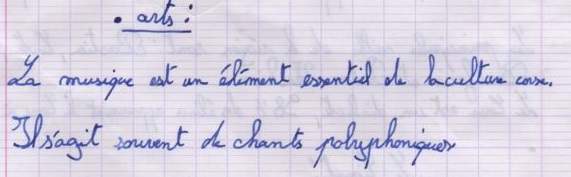 • arts :
La musique est un élément essentiel de la culture corse.
Il s'agit souvent de chants polyphoniques